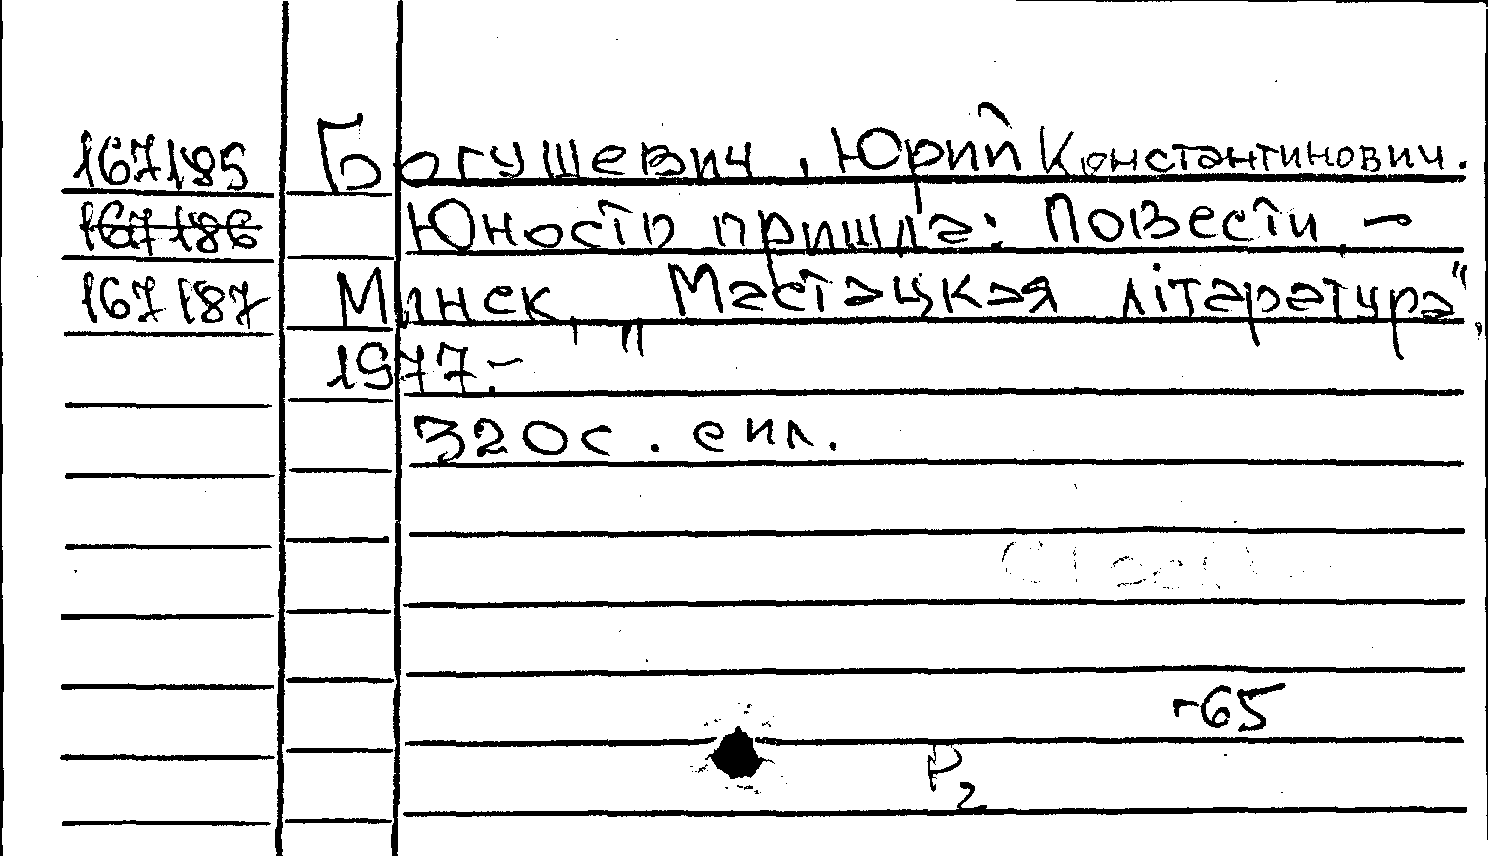 167185 Богушевич, Юрий Константинович.
167186 Юность пришла: Повести. –
167187 Минск, "Мастацкая літаратура",
1977. –
320 с. с ил.
-65
Р2